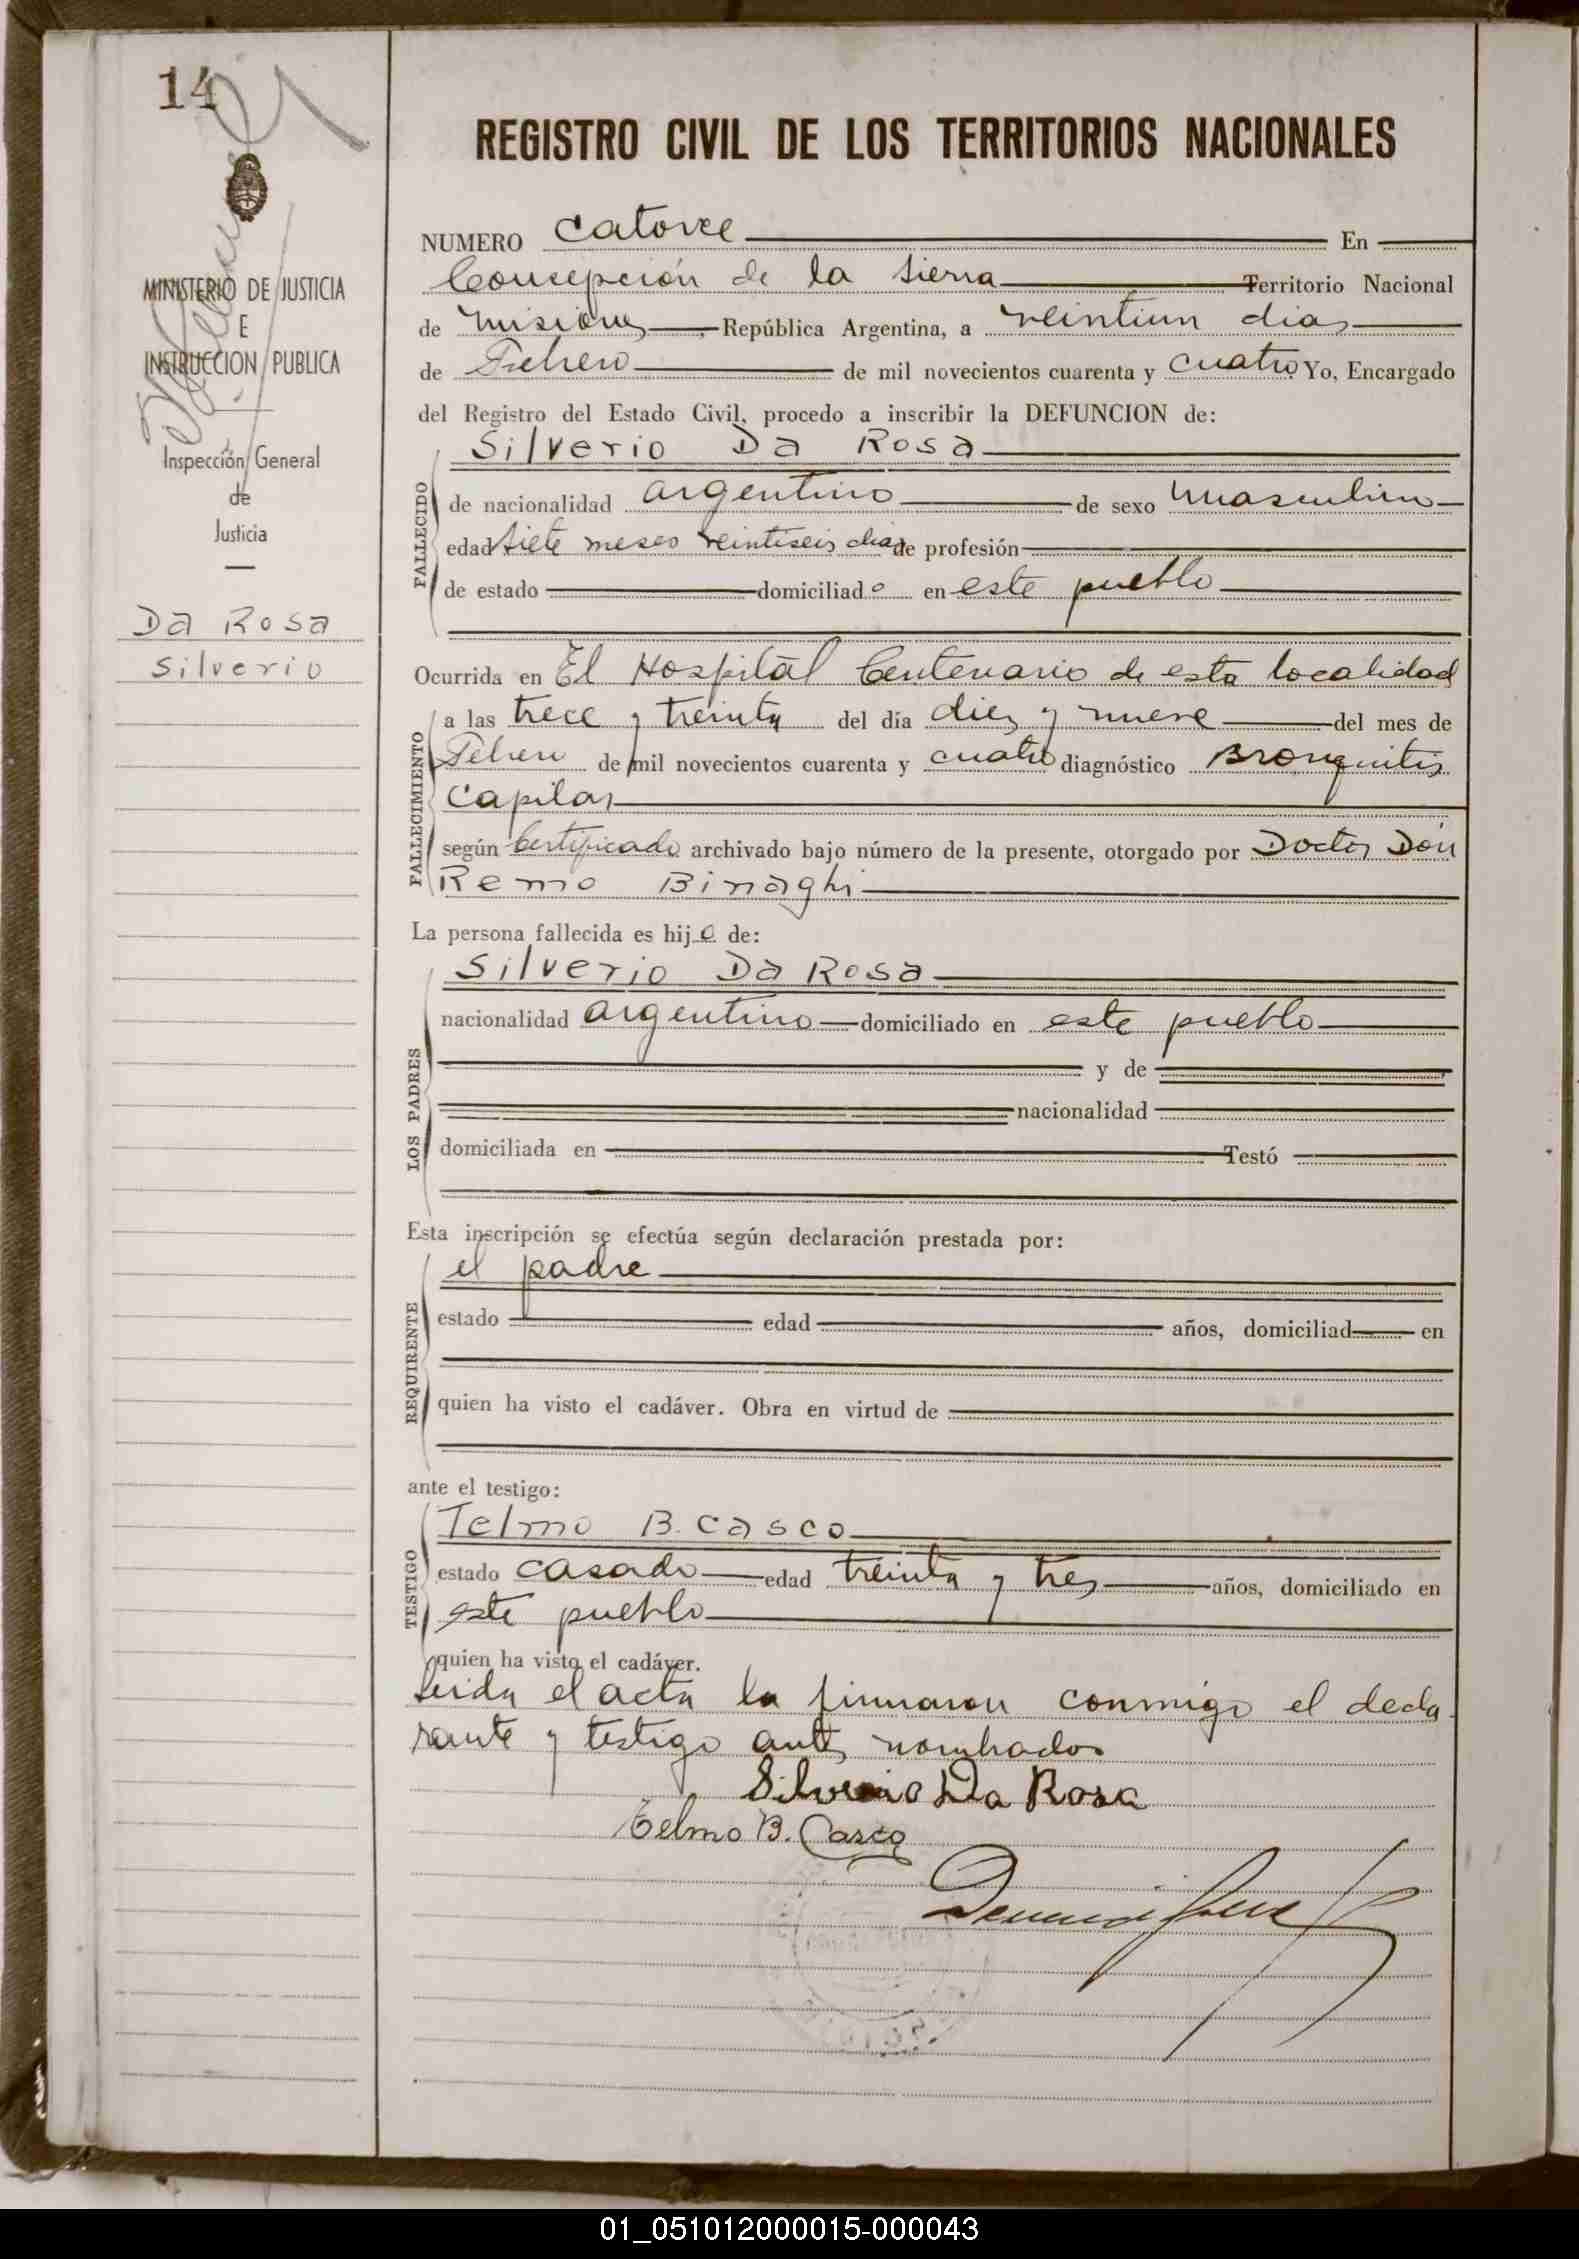 14
MINISTERIO DE JUSTICIA
E
INSTRUCCION PUBLICA
Inspección General
de
Justicia
Da Rosa
Silverio
REGISTRO CIVIL DE LOS TERRITORIOS NACIONALES
NUMERO Catorce En
Concepción de la Sierra Territorio Nacional
de Misiones República Argentina, a veintiun dias
de Febrero de mil novecientos cuarenta y cuatro Yo, Encargado
del Registro del Estado Civil, procedo a inscribir la DEFUNCION de:
FALLECIDO
Silverio Da Rosa
de nacionalidad argentino de sexo masculino
edad siete meses veintiseis dias de profesión
de estado domiciliado en este pueblo
Ocurrida en El Hospital Centenario de esta localidad
FALLECIMIENTO
a las trece y treinta del día diez y nueve del mes de
Febrero de mil novecientos cuarenta y cuatro diagnóstico Bronquitis
Capilar
según Certificado archivado bajo número de la presente, otorgado por Doctor Don
Remo Binaghi
La persona fallecida es hijo de:
LOS PADRES
Silverio Da Rosa
nacionalidad argentino domiciliado en este pueblo
y de
nacionalidad
domiciliada en Testó
Esta inscripción se efectúa según declaración prestada por:
REQUIRENTE
el padre
estado edad años, domiciliad en
quien ha visto el cadáver. Obra en virtud de
ante el testigo:
TESTIGO
Telmo B. Casco
estado casado edad treinta y tres años, domiciliado en
este pueblo
quien ha visto el cadáver.
Leida el acta la firmaron conmigo el decla
rante y testigo antes nombrados
Silverio Da Rosa
Telmo B. Casco
01_051012000015-000043